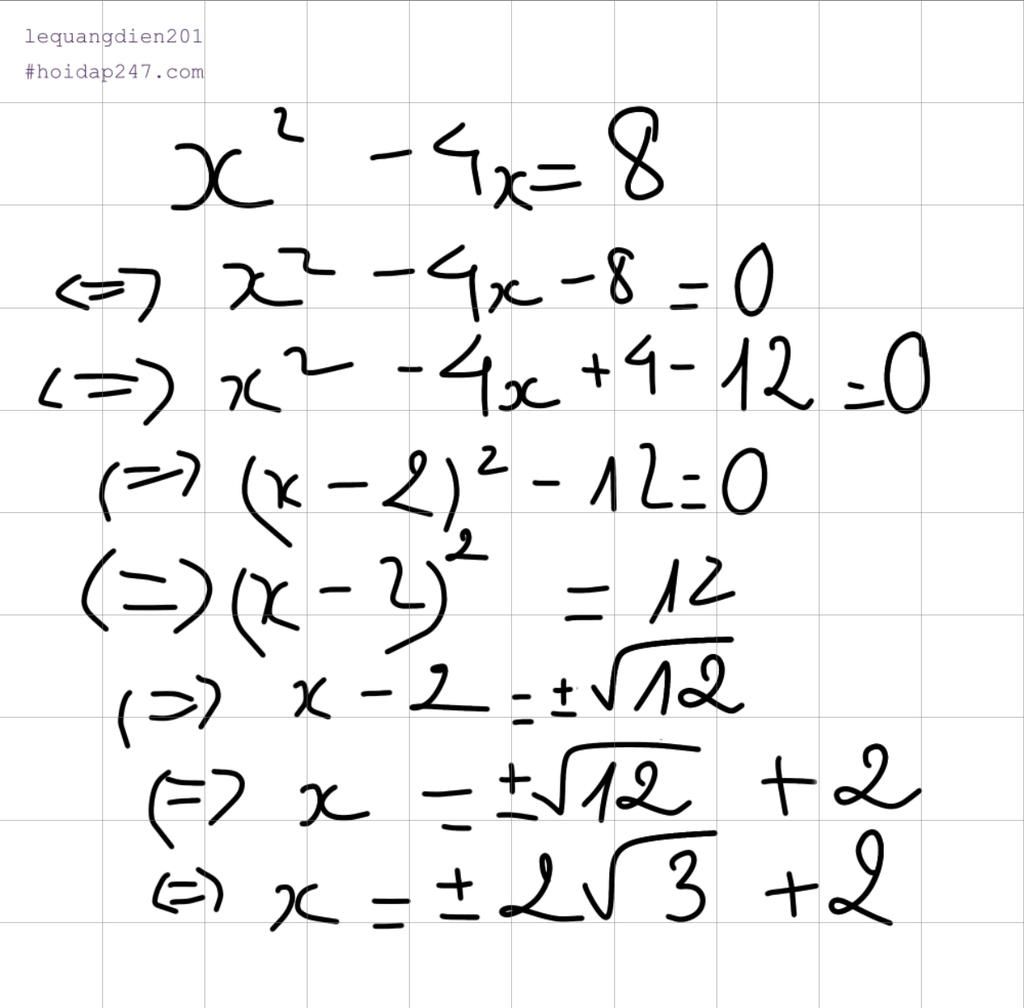 lequangdien201
#hoidap247.com
x² - 4x = 8
<=> x² - 4x - 8 = 0
<=> x² - 4x + 4 - 12 = 0
(=> (x - 2)² - 12 = 0
(=) (x - 2)² = 12
(=> x - 2 = ± √12
(=> x = ± √12 + 2
<=> x = ± 2√3 + 2